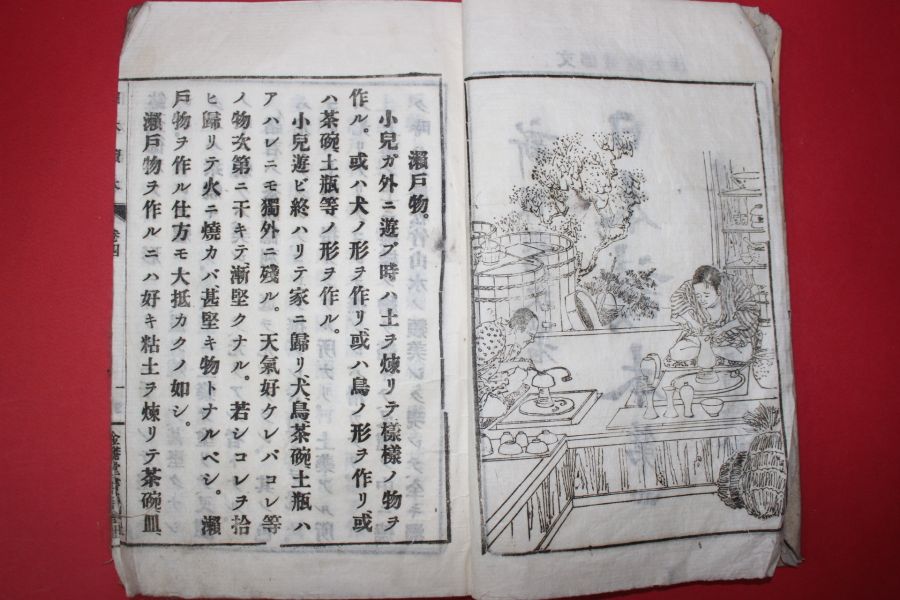 瀨戸物。
小兒ガ外ニ遊ブ時ハ土ヲ煉リテ樣樣ノ物ヲ
作ル。或ハ犬ノ形ヲ作リ或ハ鳥ノ形ヲ作リ或
ハ茶碗土瓶等ノ形ヲ作ル。
小兒遊ビ終ハリテ家ニ歸リ犬鳥茶碗土瓶ハ
アハレニモ獨外ニ殘ル。天氣好ケレバコレ等
ノ物次第ニ干キテ漸堅クナル。若シコレヲ拾
ヒ歸リテ火ニ燒カバ甚堅キ物トナルベシ。瀨
戸物ヲ作ル仕方モ大抵カクノ如シ。
瀨戸物ヲ作ルニハ好キ粘土ヲ煉リテ茶碗皿
卷四